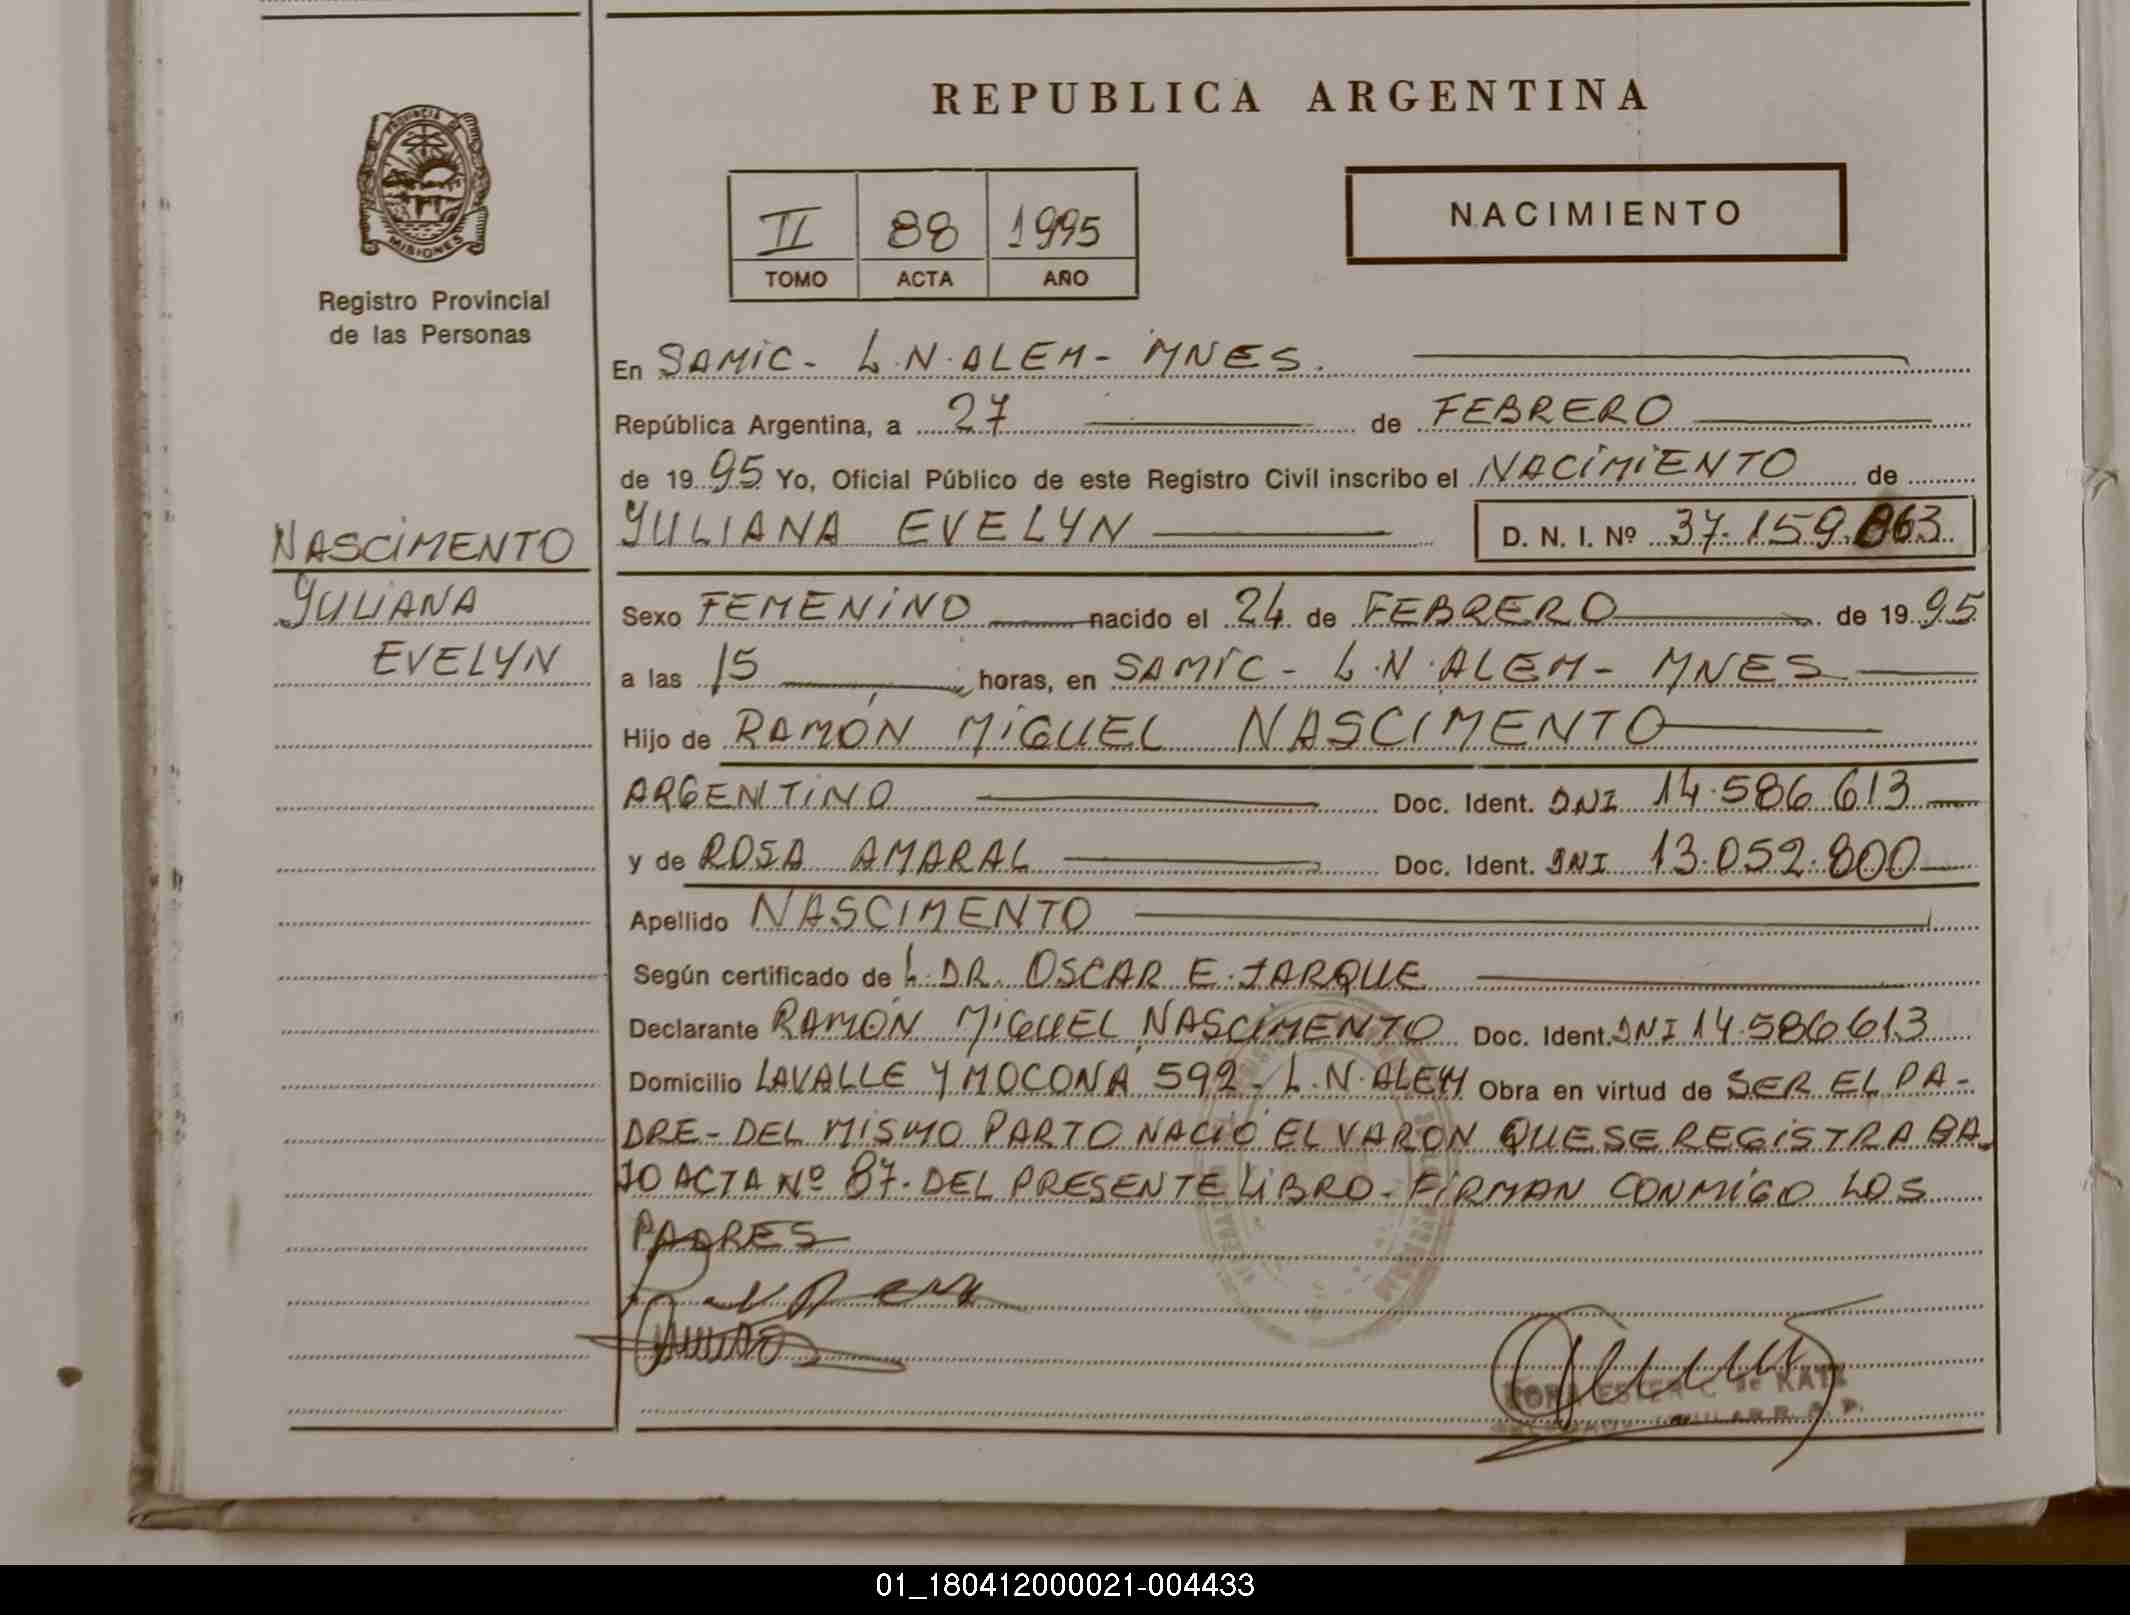 REPUBLICA ARGENTINA
PROVINCIA DE
MISIONES
Registro Provincial
de las Personas
II 88 1995
TOMO ACTA AÑO
NACIMIENTO
En SAMIC - L.N. ALEM - MNES.
República Argentina, a 27 de FEBRERO
de 1995 Yo, Oficial Público de este Registro Civil inscribo el NACIMIENTO de
YULIANA EVELYN D. N. I. Nº 37.159.863
NASCIMENTO
YULIANA
EVELYN
Sexo FEMENINO nacido el 24 de FEBRERO de 1995
a las 15 horas, en SAMIC - L.N. ALEM - MNES
Hijo de RAMÓN MIGUEL NASCIMENTO
ARGENTINO Doc. Ident. DNI 14.586.613
y de ROSA AMARAL Doc. Ident. DNI 13.052.800
Apellido NASCIMENTO
Según certificado de L. DR. OSCAR E. JARQUE
Declarante RAMÓN MIGUEL NASCIMENTO Doc. Ident. DNI 14.586613
Domicilio LAVALLE Y MOCONA 592 - L.N. ALEM Obra en virtud de SER EL PA-
DRE - DEL MISMO PARTO NACIÓ EL VARON QUE SE REGISTRA BA-
JO ACTA Nº 87. DEL PRESENTE LIBRO - FIRMAN CONMIGO LOS
PADRES
ESTER C. de KATZ
01_180412000021-004433